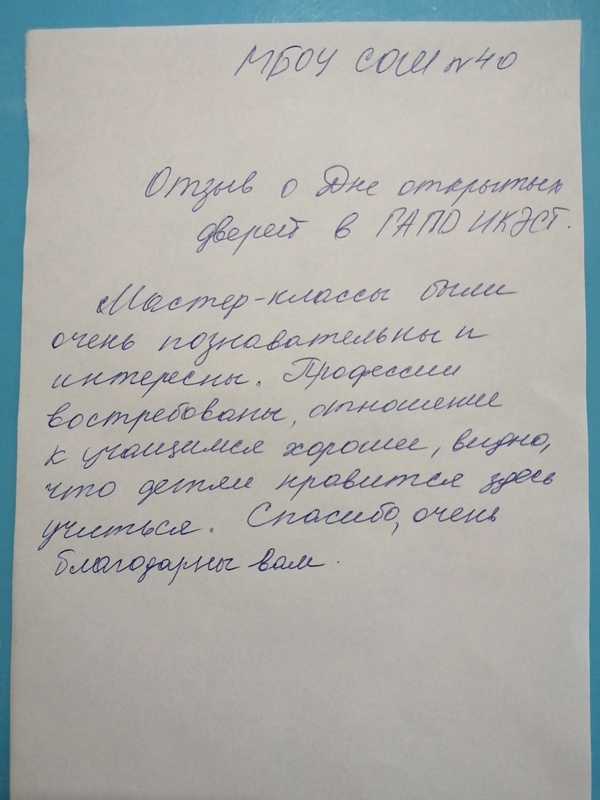 МБОУ СОШ №40
Отзыв о Дне открытых
дверей в ГАПО ИКЭСТ.
Мастер-классы были
очень познавательны и
интересны. Профессии
востребованы, отношение
к учащимся хорошее, видно,
что детям нравится здесь
учиться. Спасибо, очень
благодарны вам.